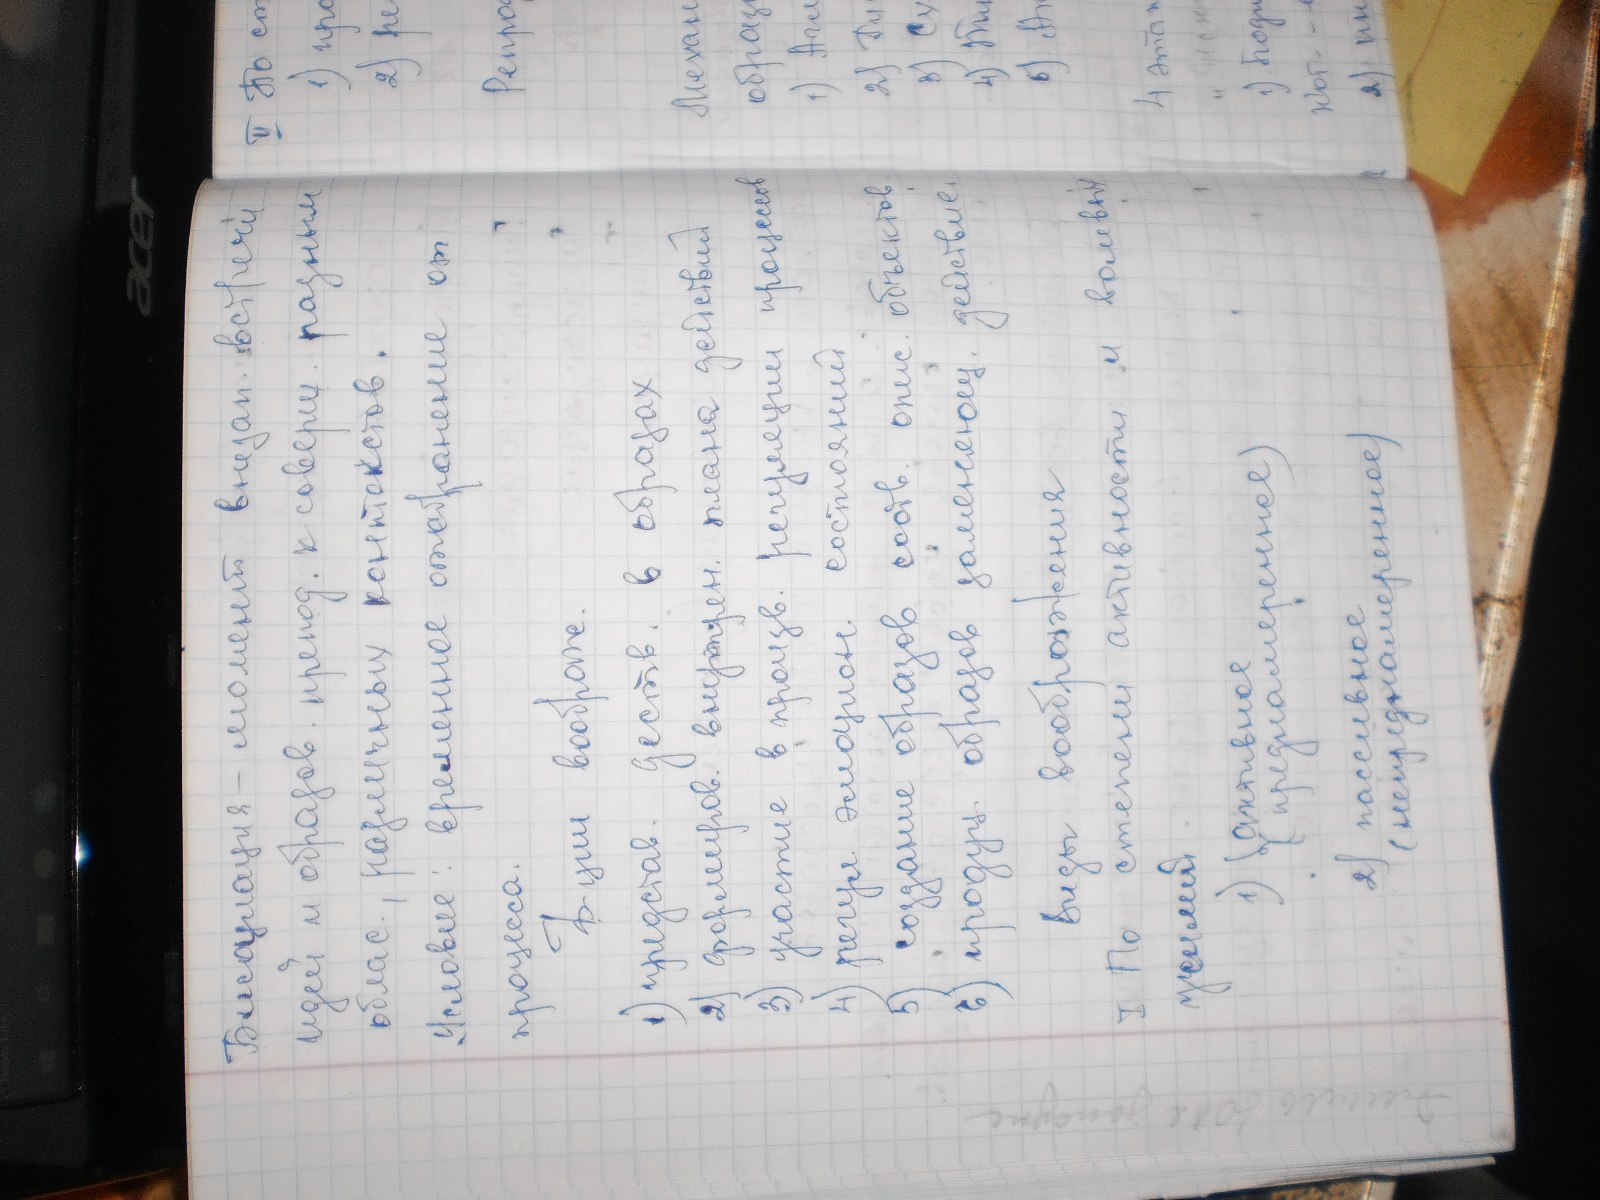 Бисоциация – момент внезап. встречи
идей и образов. принод. к соверш. разным
облас., различных контекстов.
Условие: временное отстранение от
процесса.
Ф-ции воображ.
1) представ. действ. в образах
2) формиров. внутрен. плана действий
3) участие в произв. регуляции процессов
4) регул эмоцион. состояний
5) создание образов соотв. опис. объектов.
6) продуц. образов заменяющ. действие.
Виды воображения
I По степени активности и волевых
усилий
1) активное
(преднамеренное)
2) пассивное
(непреднамеренное)
II По ст
1) про
2) ре
Репрод
Механ
образ
1) Агг
2)
3)
4)
5)
4 этап
1) Подг
2)
acer